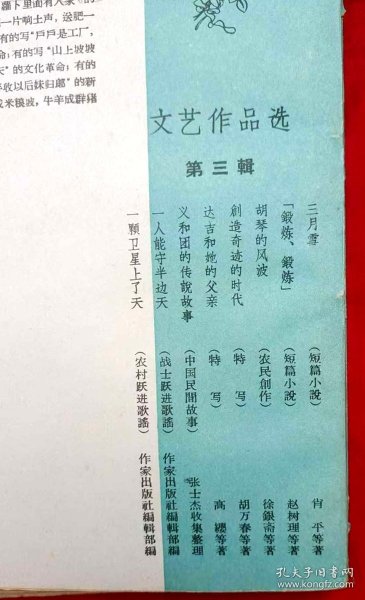 蘿下里面有人家
一片响土声，送肥一
有的写“戶戶是工厂，
命；有的写“山上坡坡
天”的文化革命；有的
收以后妹归郎”的新
成米粮波，牛羊成群猪
文艺作品选
第三輯
三月雪（短篇小說）肖平等著
「鍛炼、鍛炼」（短篇小說）赵树理等著
胡琴的风波（农民創作）徐銀斋等著
創造奇迹的时代（特写）胡万春等著
达吉和她的父亲（特写）高纓等著
义和团的传說故事（中国民間故事）张士杰收集整理
一人能守半边天（战士跃进歌謠）作家出版社編輯部編
一顆卫星上了天（农村跃进歌謠）作家出版社編輯部編
孔夫子旧书网